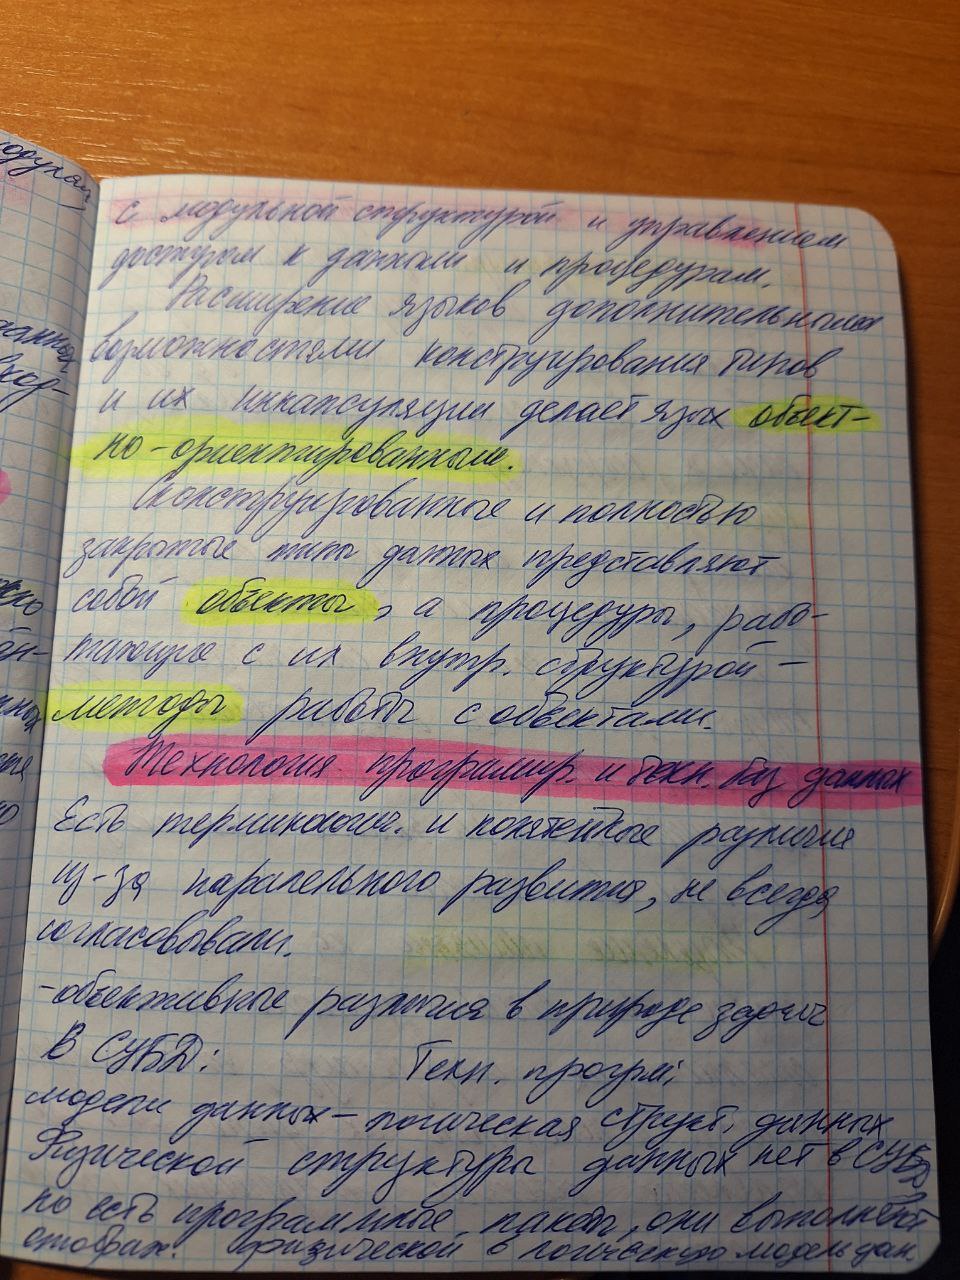 с модульной структурой и управлением
доступом к данным и процедурам.
Расширение языков дополнительными
возможностями конструирования типов
и их инкапсуляции делает язык объект-
но-ориентированным.
Сконструированные и полностью
закрытые типы данных представляют
собой объекты, а процедуры, рабо-
тающие с их внутр. структурой –
методы работы с объектами.
Технология программир. и техн. баз данных
Есть терминологич. и понятийные различия
из-за паралельного развития, не всегда
согласовывали.
-объективные различия в природе задач
В СУБД: Техн. прогрм:
модели данных – логическая структ. данных
Физической структуры данных нет в СУБД
но есть программные пакеты, они выполняют
отображ. физической в логическую модель дан.